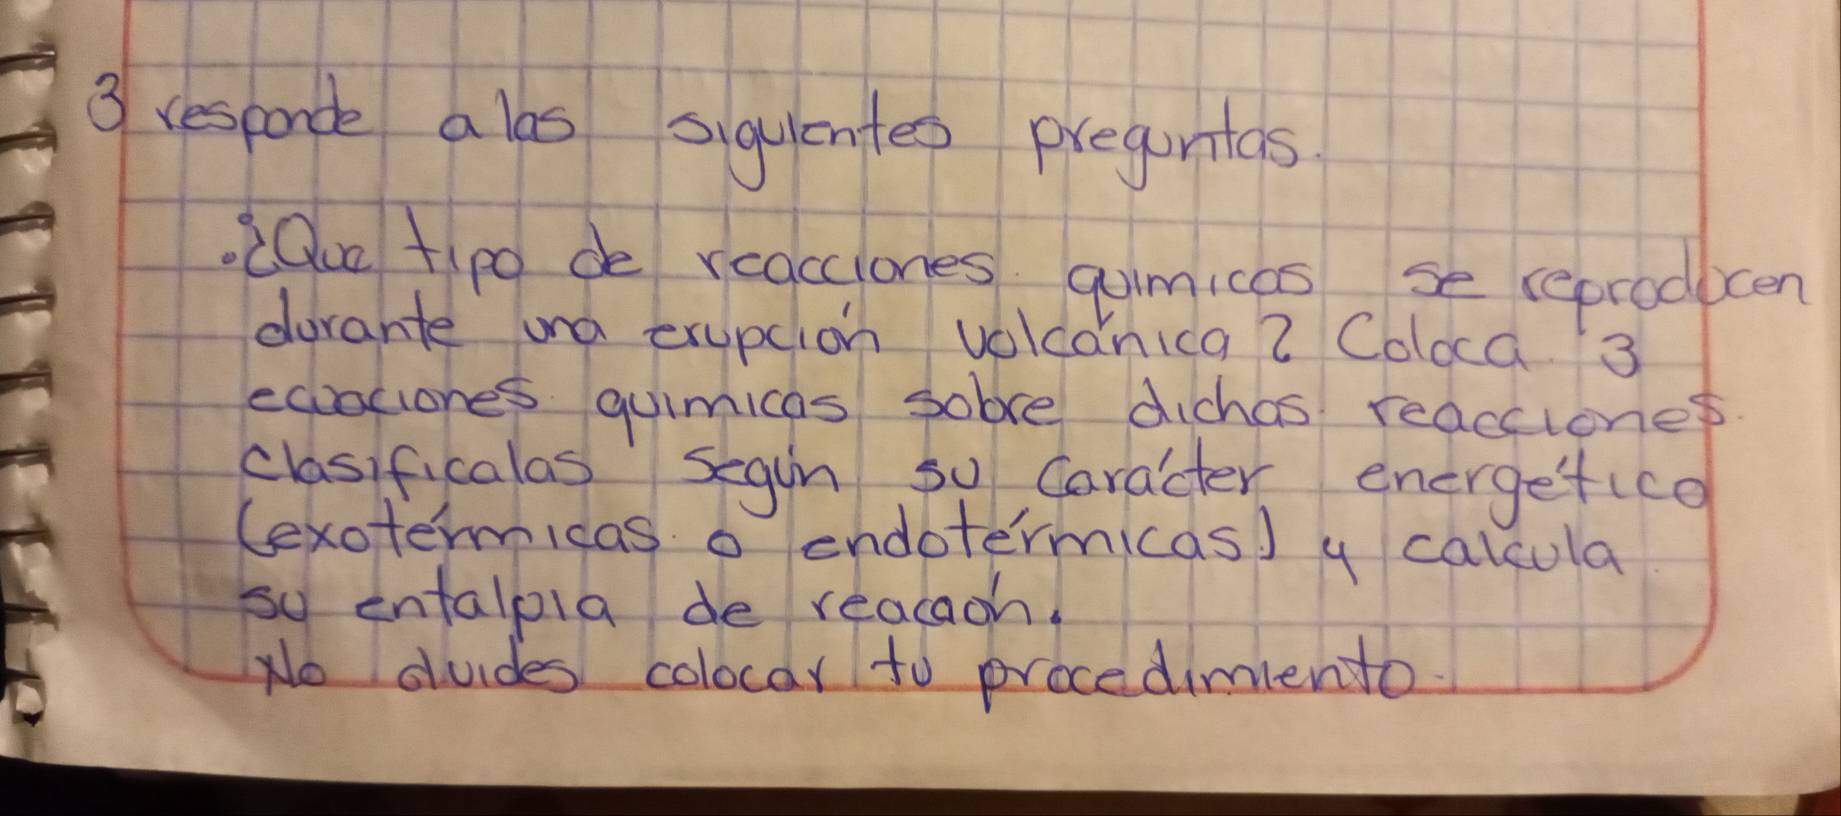 3 responde a las siguientes preguntas.
• ¿Que tipo de reacciones quimicas se reproducen
durante una erupción volcánica? Coloca 3
ecuaciones quimicas sobre dichas reacciones.
clasificalas según su carácter energético
(exotérmicas o endotérmicas) y calcula
su entalpia de reacción.
No olvides colocar tu procedimiento.